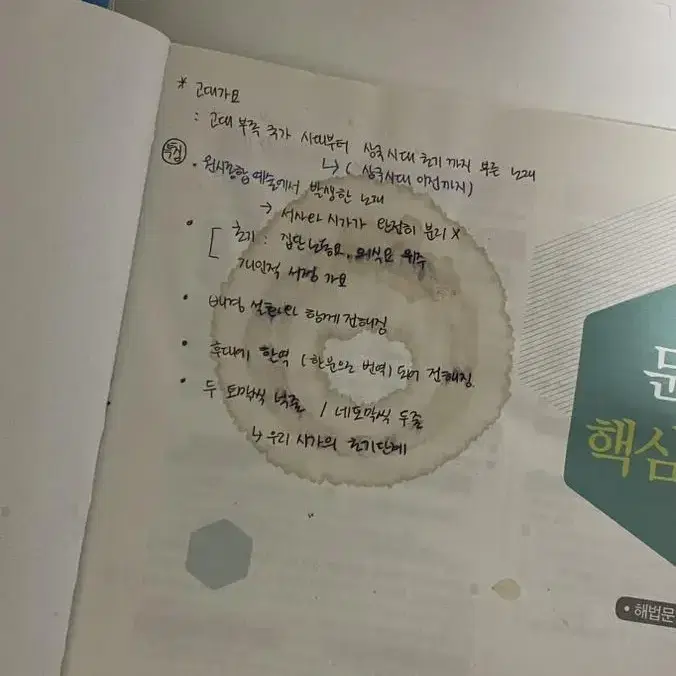 * 고대가요
: 고대 부족 국가 시대부터 삼국시대 초기까지 부른 노래
↳ (삼국시대 이전까지)
특징
• 원시종합예술에서 발생한 노래
→ 서사와 시가가 완전히 분리 X
• [ 초기 : 집단노동요, 의식요 위주
개인적 서정 가요
• 배경 설화와 함께 전해짐
• 후대에 한역 (한문으로 번역) 되어 전해짐
• 두 토막씩 넉줄 / 네토막씩 두줄
↳ 우리 시가의 초기단계
핵심
• 해법문